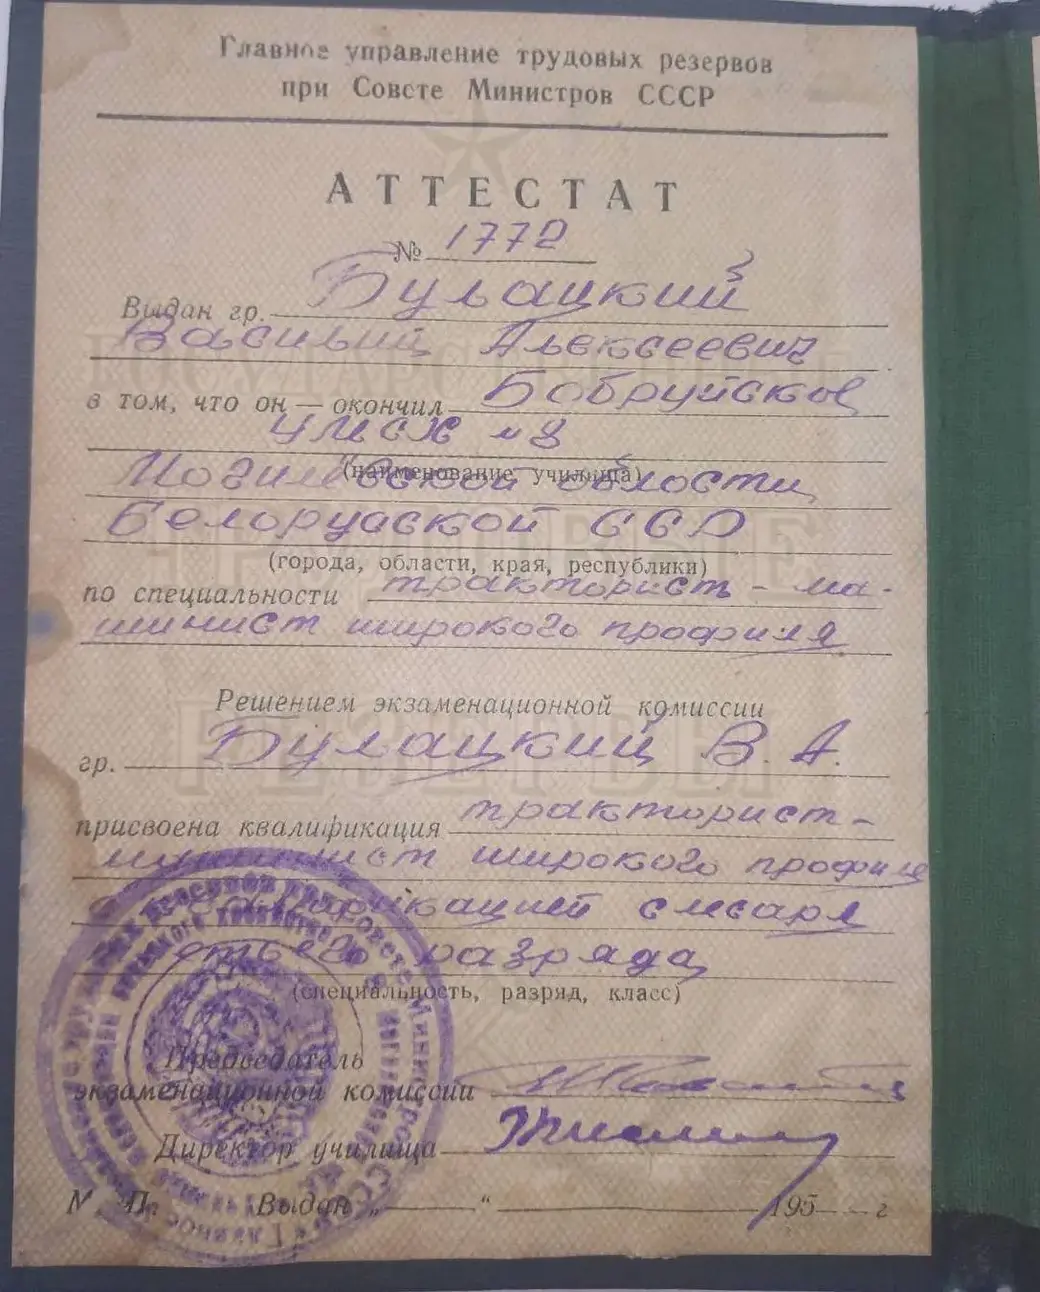 Главное управление трудовых резервов
при Совете Министров СССР
АТТЕСТАТ
№ 1772
Выдан гр. Булацкий
Василий Алексеевич
в том, что он — окончил Бобруйское
УМСХ № 8
(наименование училища)
Могилевской области
Белорусской ССР
(города, области, края, республики)
по специальности тракторист - ма-
шинист широкого профиля
Решением экзаменационной комиссии
гр. Булацкий В. А.
присвоена квалификация тракторист -
машинист широкого профиля
с квалификацией слесаря
третьего разряда
(специальность, разряд, класс)
Председатель
экзаменационной комиссии
Директор училища
М. П. Выдан „ “ 195 г
ГОСУДАРСТВЕННЫЕ
ТРУДОВЫЕ
РЕЗЕРВЫ